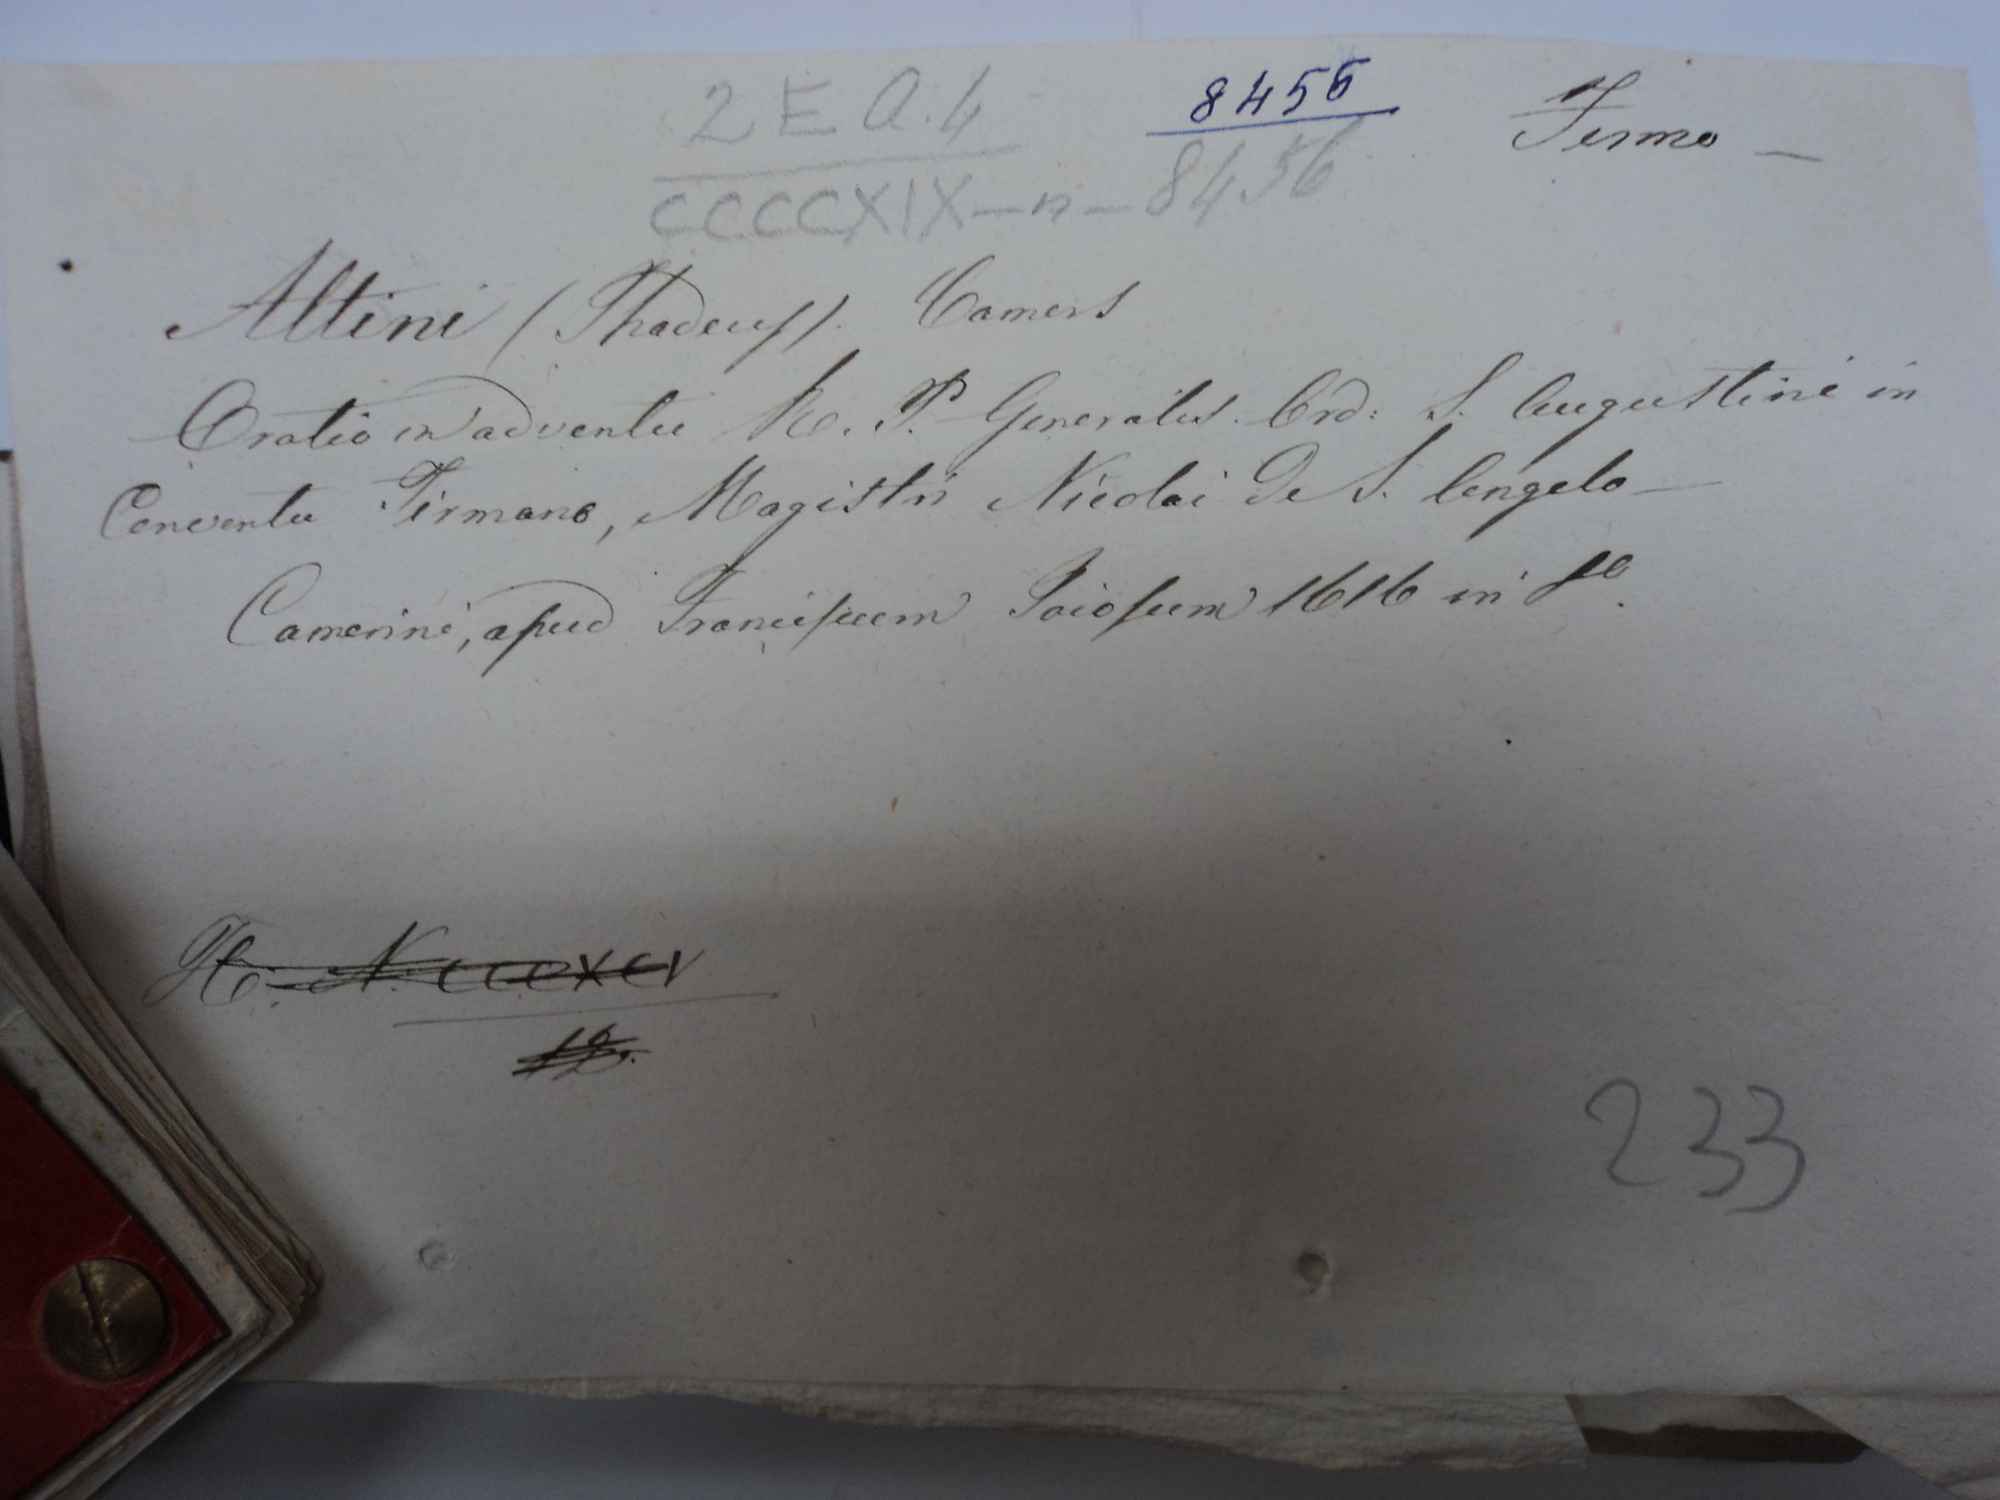 2 E Q. 4
8455
Fermo —
CCCCXIX — n — 8456
Altini (Thadeus). Camers
Oratio in adventu R. P. Generalis. Ord: S. Augustini in
Conventu Firmano, Magistri Nicolai De S. Angelo —
Camerini, apud Franciscum Joiosum 1616 in
H. N. CCCXCV
12.
233